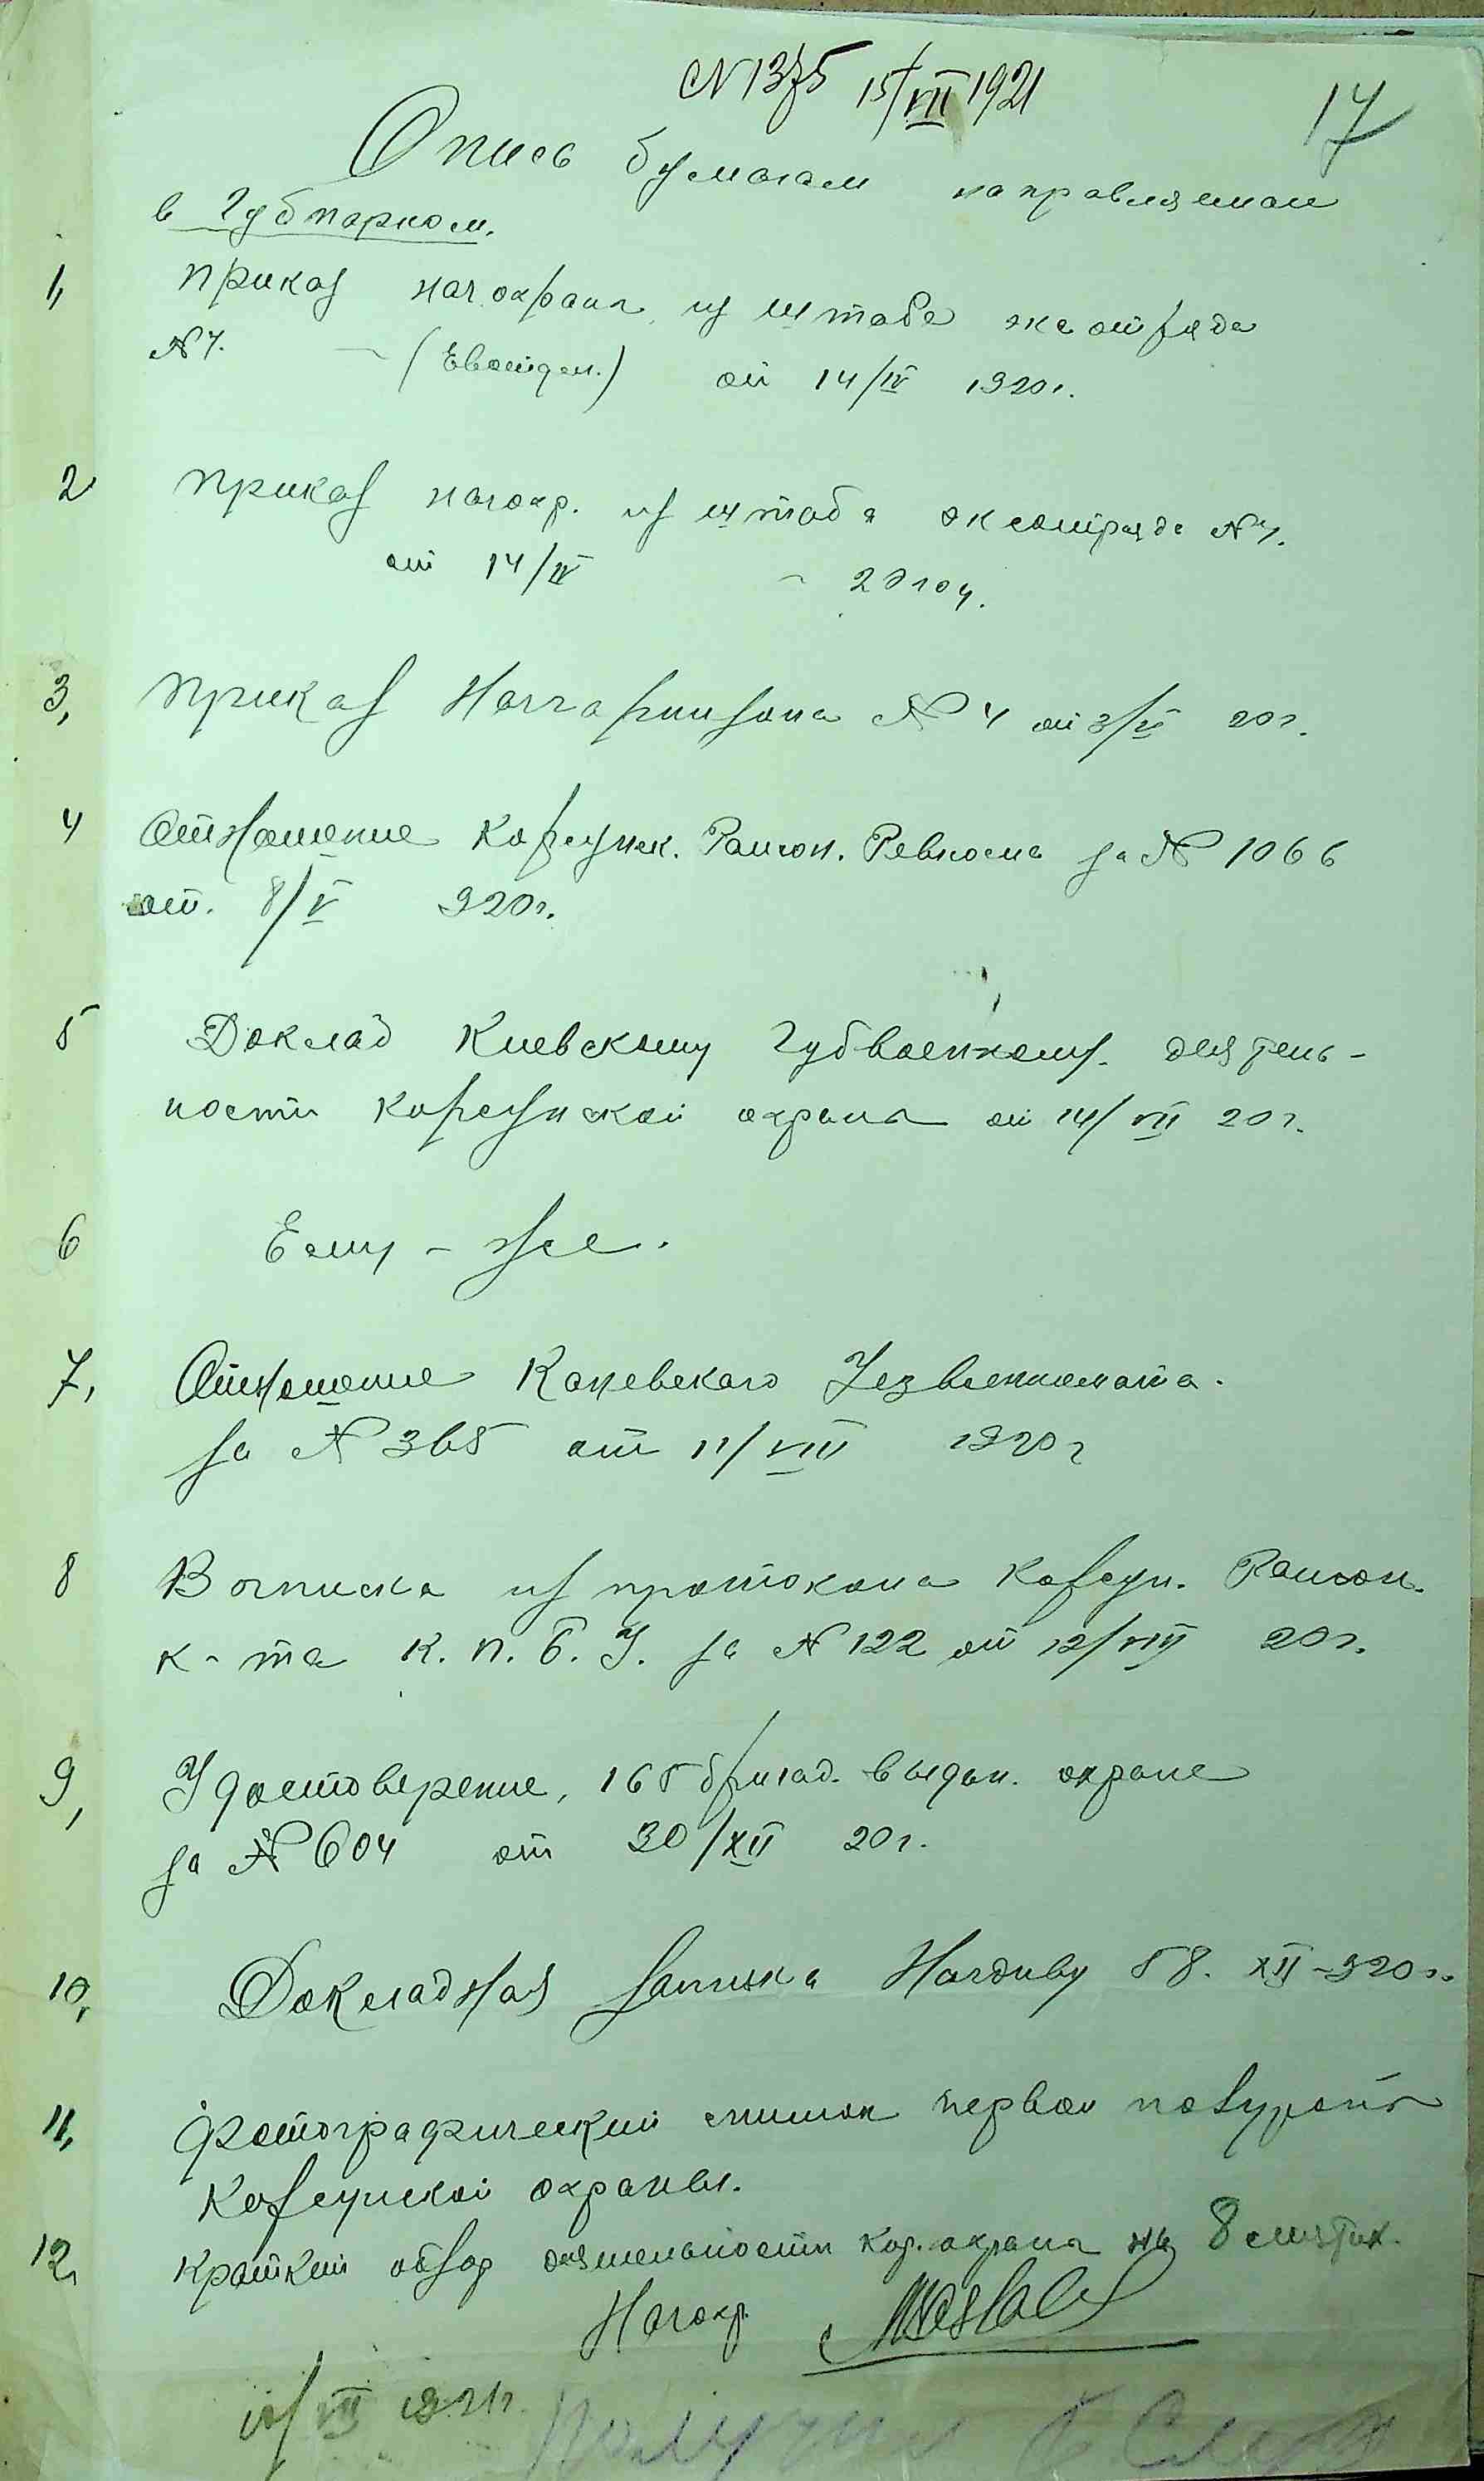 № 1375 15/VII 1921
17
Опись бумагам направляемам
в Губпарком.
1, Приказ начохраны из штаба экс отряда
№ 4. — (Евоидеи.) от 14/IV 1920 г.
2 Приказ начохр. из штаба эксотряда № 4.
от 14/IV - 20 года.
3, Приказ Начгарнизона № 4 от 3/V 20 г.
4 Отношение Корсунск. Район. Ревкома за № 1066
от. 8/V 920 г.
5 Доклад Киевскому Губвоенкому. деятель-
ности Корсунской охраны от 14/VII 20 г.
6 Ему - же.
7, Отношение Каневского Уезвоенкомата.
за № 365 от 11/VIII 1920 г
8 Вописка из протокола Корсун. Район.
к-та К. П. б. У. за № 122 от 12/VIII 20 г.
9, Удостоверение, 165 бригад. выдан. охране
за № 604 от 30/XII 20 г.
10, Докладная записка Начдиву 58. XII - 920 г.
11, Фотографический снимок первой
Корсунской охраны.
12, Краткий обзор деятельности Кор. охраны на 8 листах.
Начохр.
/VII 1921 г.
Получил